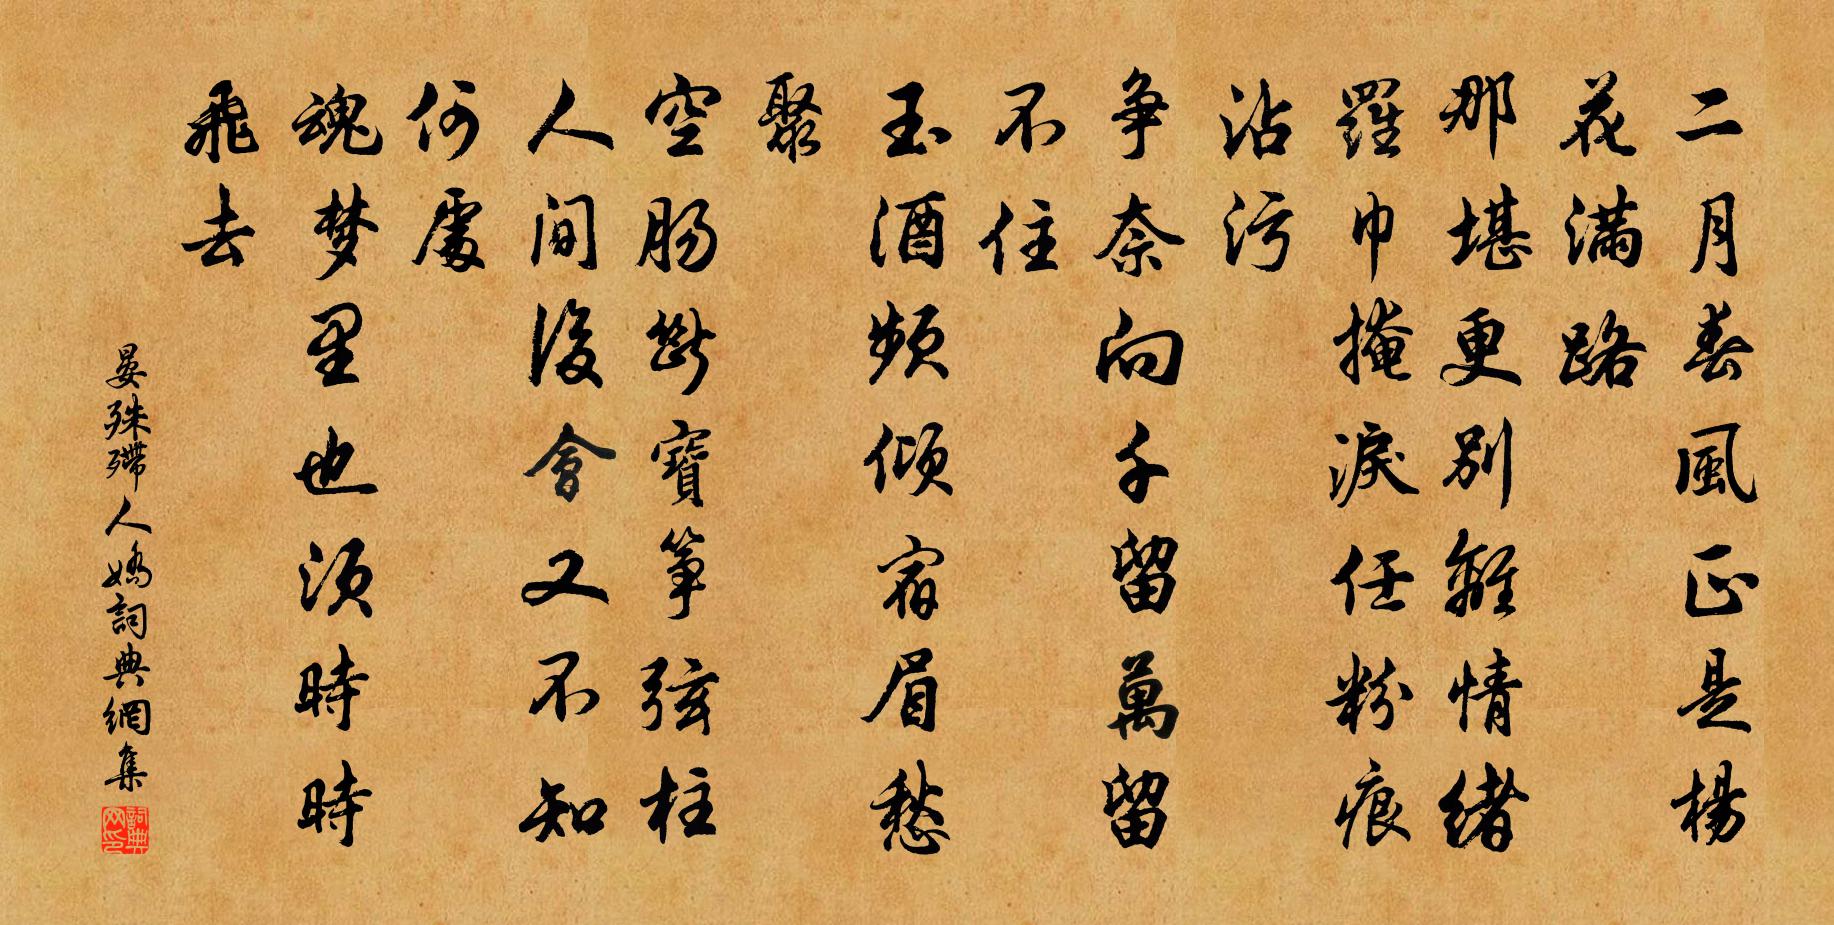 二月春風正是楊
花滿路
那堪更別離情緒
羅巾掩淚任粉痕
沾污
爭奈向千留萬留
不住
玉酒頻傾宿眉愁
聚
空腸斷寶箏弦柱
人間後會又不知
何處
魂梦里也須時時
飛去
晏殊殢人嬌詞典網集
詞典
网印